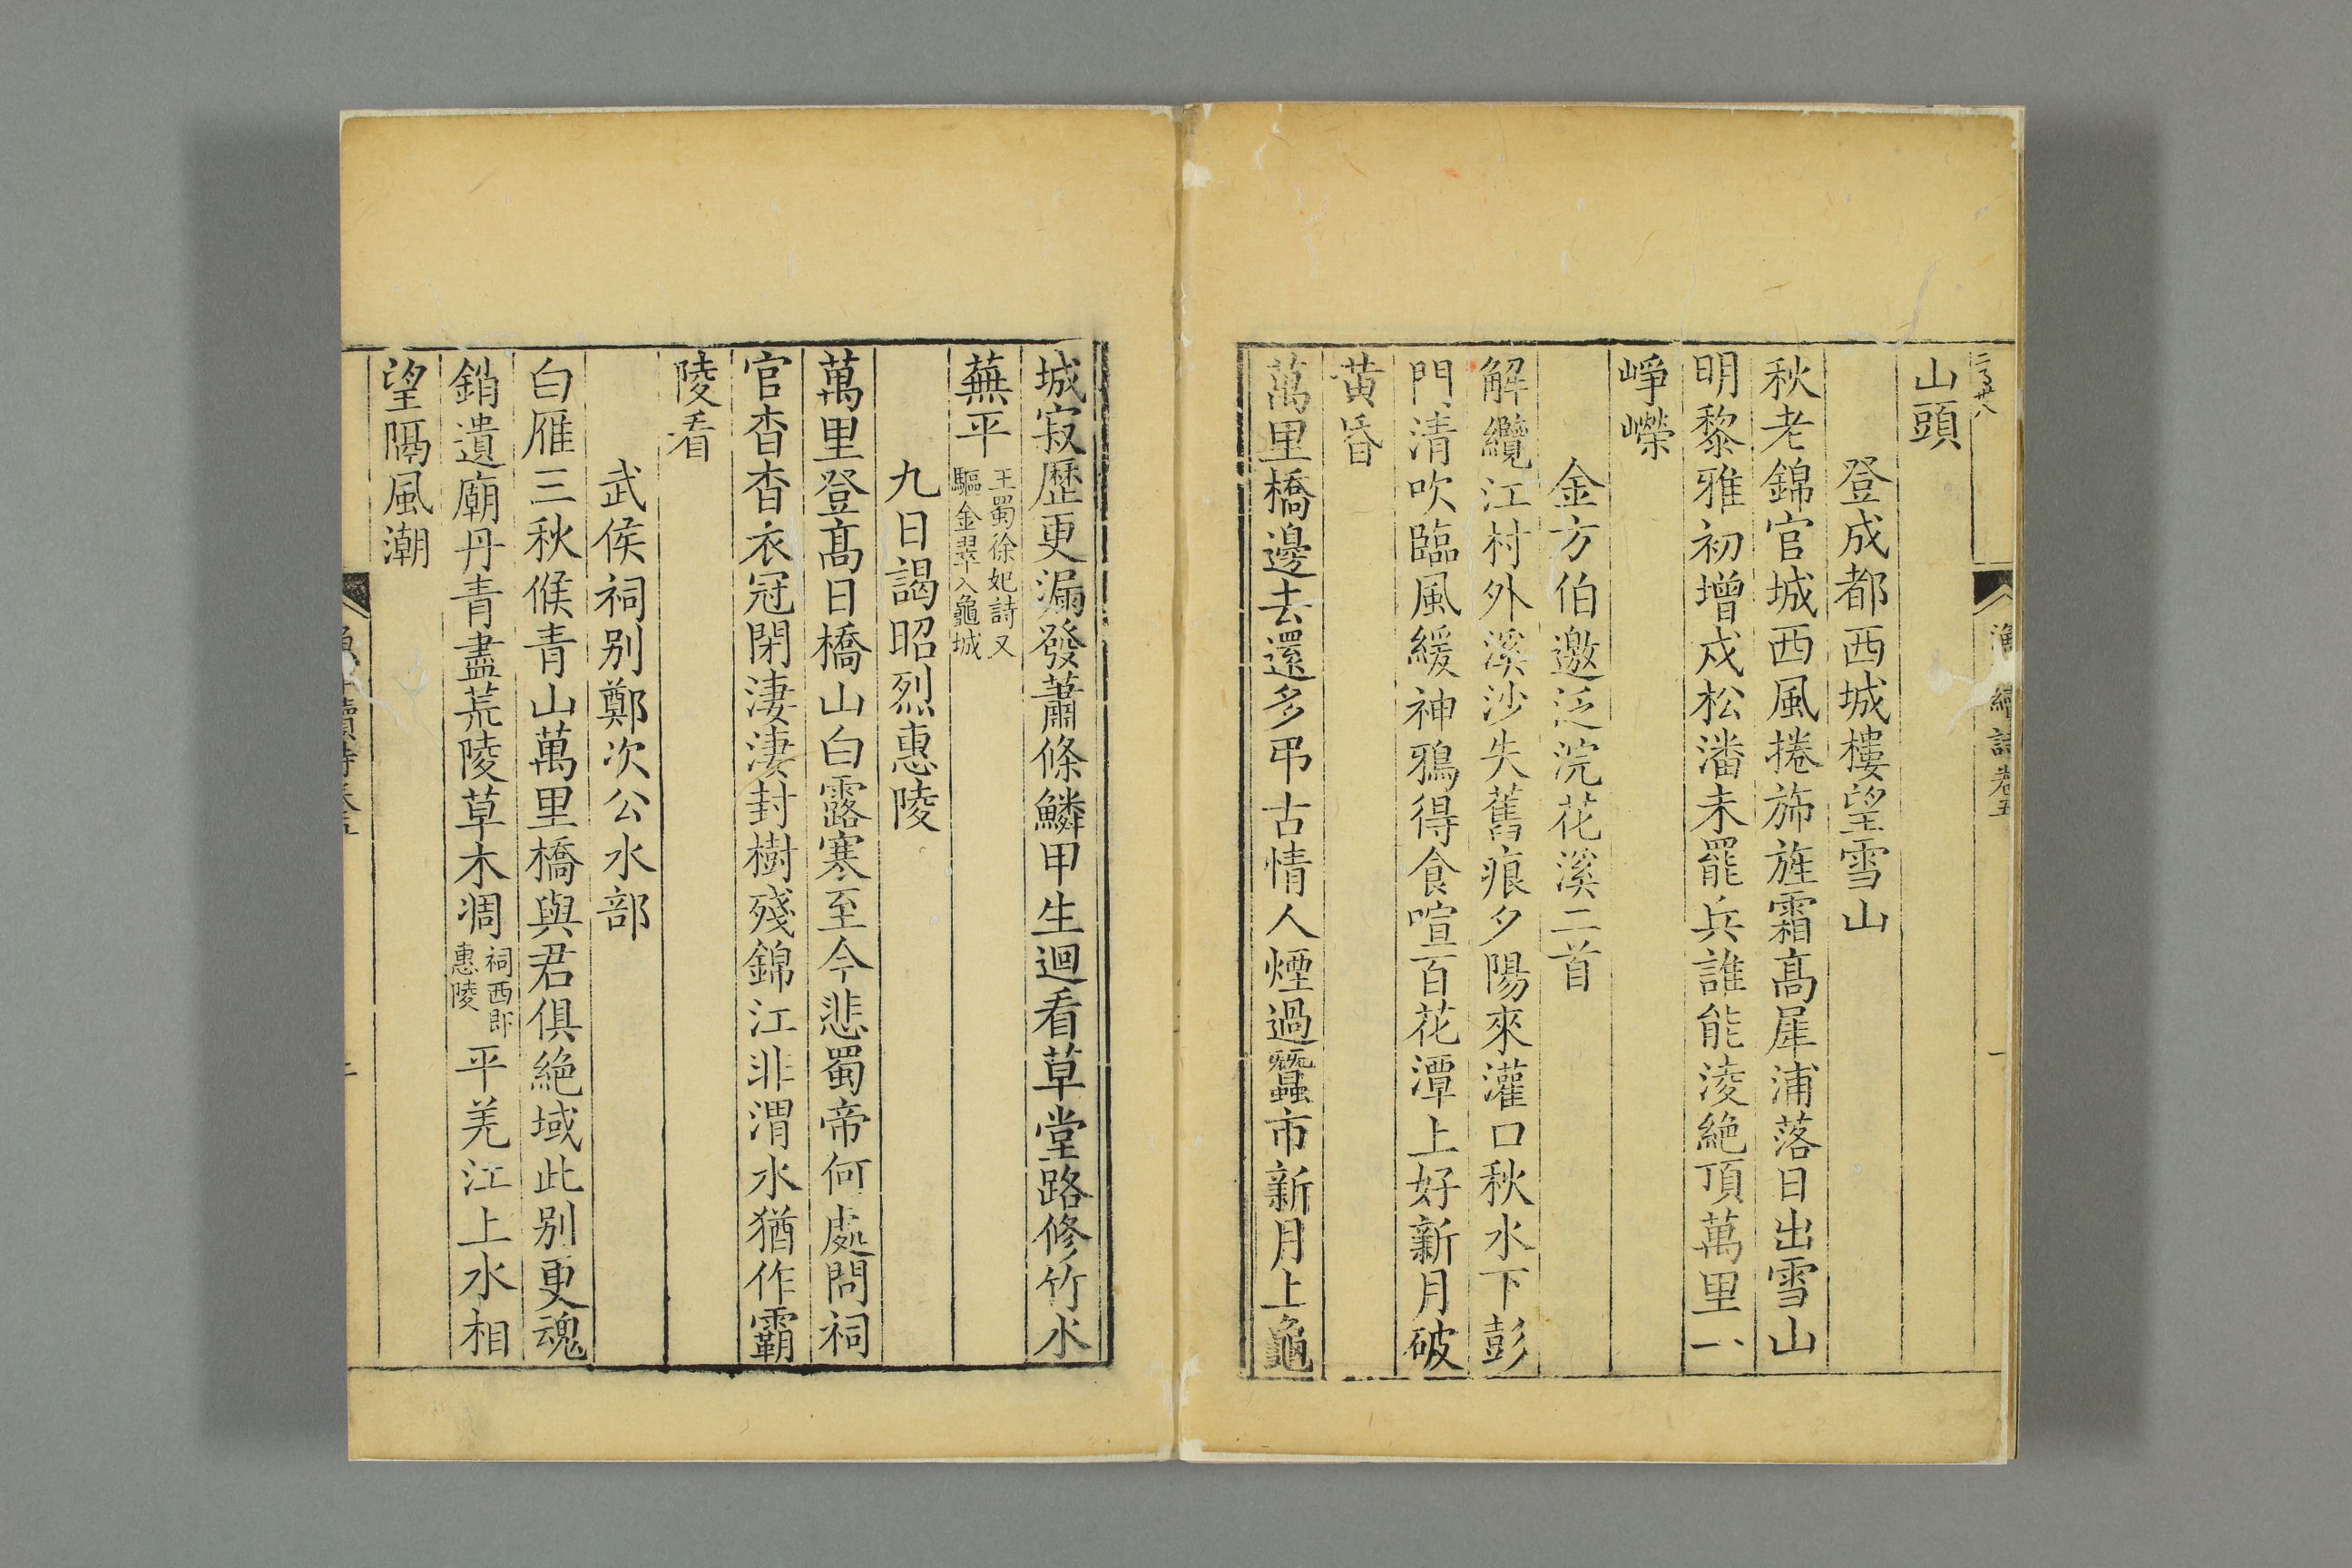 山頭
登成都西城樓望雪山
秋老錦官城西風捲斾旌霜高犀浦落日出雪山
明黎雅初增戍松潘未罷兵誰能淩絶頂萬里一
崢嶸
金方伯邀泛浣花溪二首
解纜江村外溪沙失舊痕夕陽來灌口秋水下彭
門清吹臨風緩神鴉得食喧百花潭上好新月破
黄昏
萬里橋邊去還多弔古情人煙過蠶市新月上龜
城寂歷更漏發蕭條鱗甲生迴看草堂路修竹水
蕪平
王蜀徐妃詩又
驅金翠入龜城
九日謁昭烈惠陵
萬里登高日橋山白露寒至今悲蜀帝何處問祠
官杳杳衣冠閉淒淒封樹殘錦江非渭水猶作霸
陵看
武侯祠别鄭次公水部
白雁三秋候青山萬里橋與君俱絶域此别更魂
銷遺廟丹青盡荒陵草木凋祠西即惠陵平羌江上水相
望隔風潮
續詩卷五